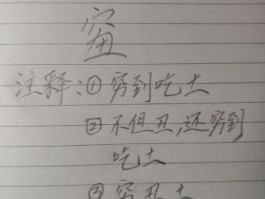 注释:①穷到吃土
②不但丑,还穷到
吃土
③穷丑土